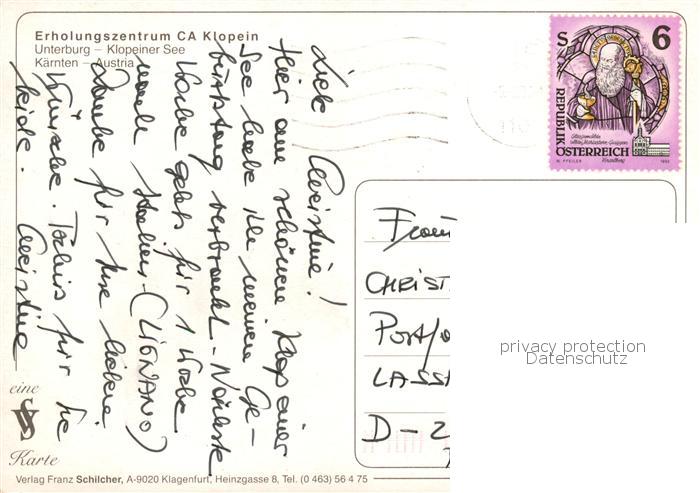 Erholungszentrum CA Klopein
Unterburg – Klopeiner See
Kärnten – Austria
Liebe Christine!
Hier am schönen Klopeiner
See habe ich meinen Ge-
burtstag verbracht - Nächste
Woche geht's für 1 Woche
nach Italien (LIGNANO)
Danke für Ihre lieben
Wünsche. Tschüs für Sie
beide. Christine
S 6
REPUBLIK
ÖSTERREICH
Frau
CHRIST
Postfa
LASSA
D-2
privacy protection
Datenschutz
eine
Karte
Verlag Franz Schilcher, A-9020 Klagenfurt, Heinzgasse 8, Tel. (0 463) 56 4 75